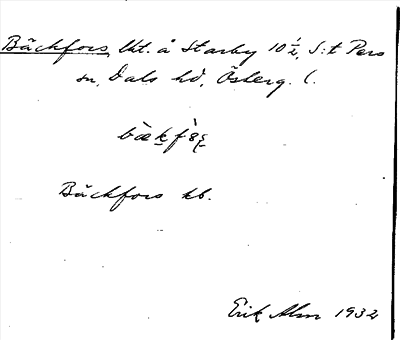 Bäckfors, lht. å Starby 10 ½, S:t Pers
sn, Dals hd, Österg. l.
Bäckfors kb.
Erik Alm 1932